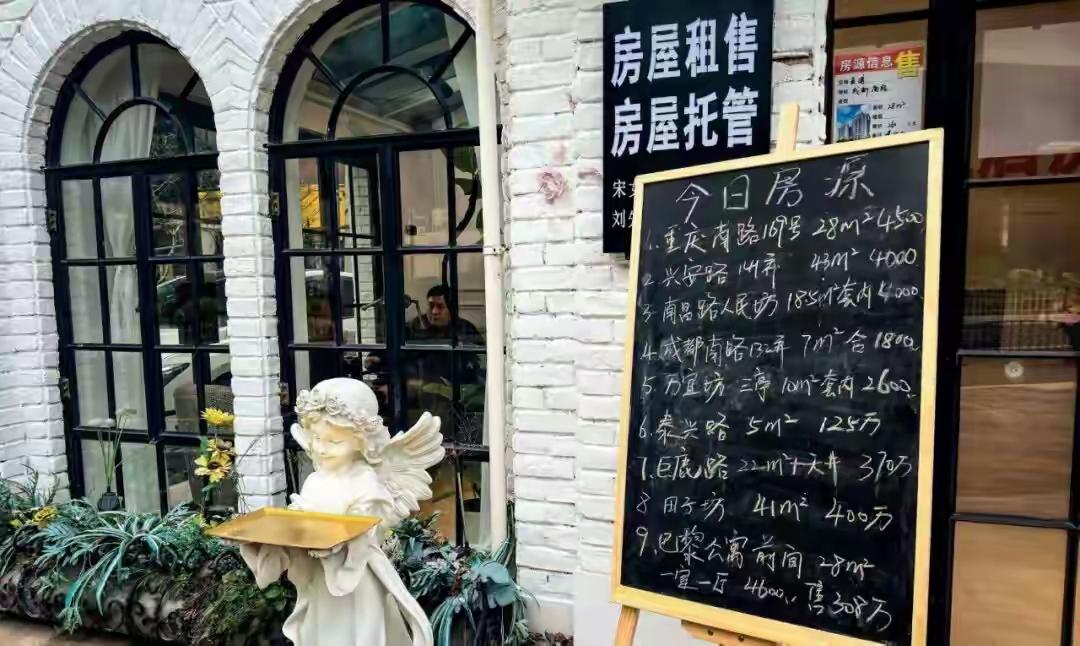 房屋租售
房屋托管
宋
刘
房源信息 售
28m²
今日房源
1. 重庆南路169号 28m² 4500
2. 兴安路141弄 43m² 4000
3. 南昌路人民坊 18.5m²套内 4000
4. 成都南路132弄 7m² 合 1800
5. 万宜坊 三亭 10m²套内 2600
6. 泰兴路 5m² 125万
7. 巨鹿路 22m²+天井 370万
8 田子坊 41m² 400万
9. 巴黎公寓前间 28m²
一室一厅 4600 售308万